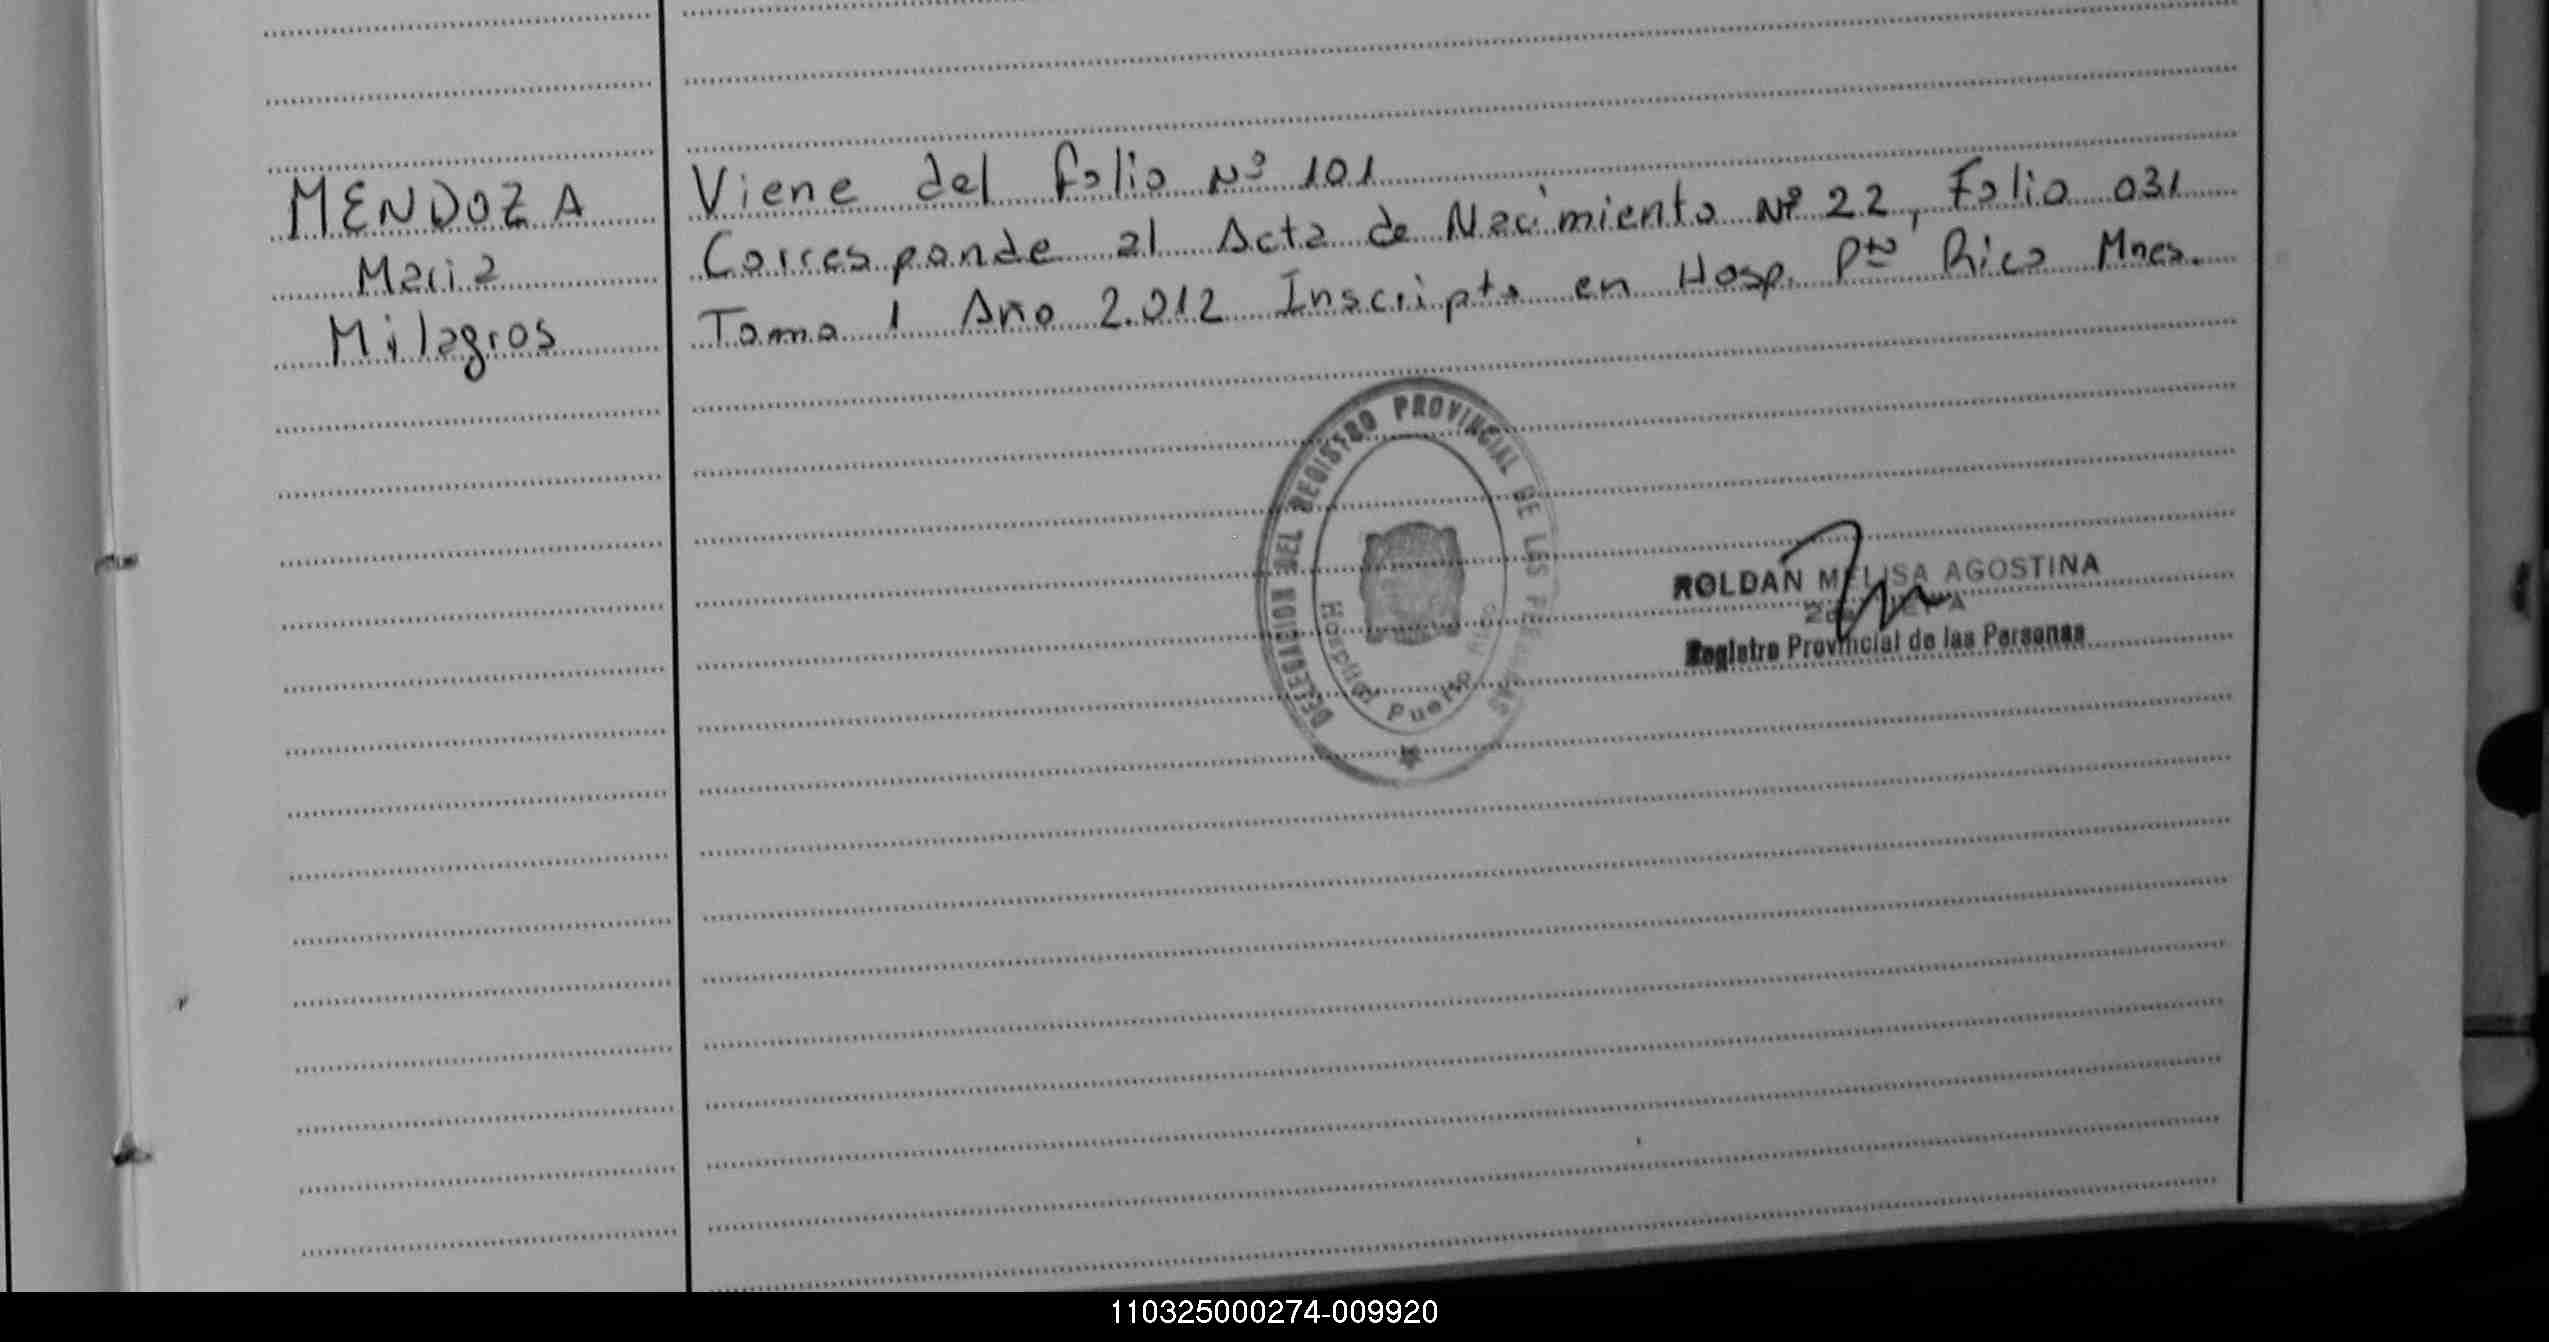 MENDOZA
Maria
Milagros
Viene del folio Nº 101
Corresponde al Acta de Nacimiento Nº 22, Folio 031
Tomo 1 Año 2.012 Inscripto en Hosp. Pto Rico Mnes.
DELEGACION DEL REGISTRO PROVINCIAL DE LAS PERSONAS
Hospital Puerto Rico
ROLDAN MELISA AGOSTINA
Registro Provincial de las Personas
110325000274-009920